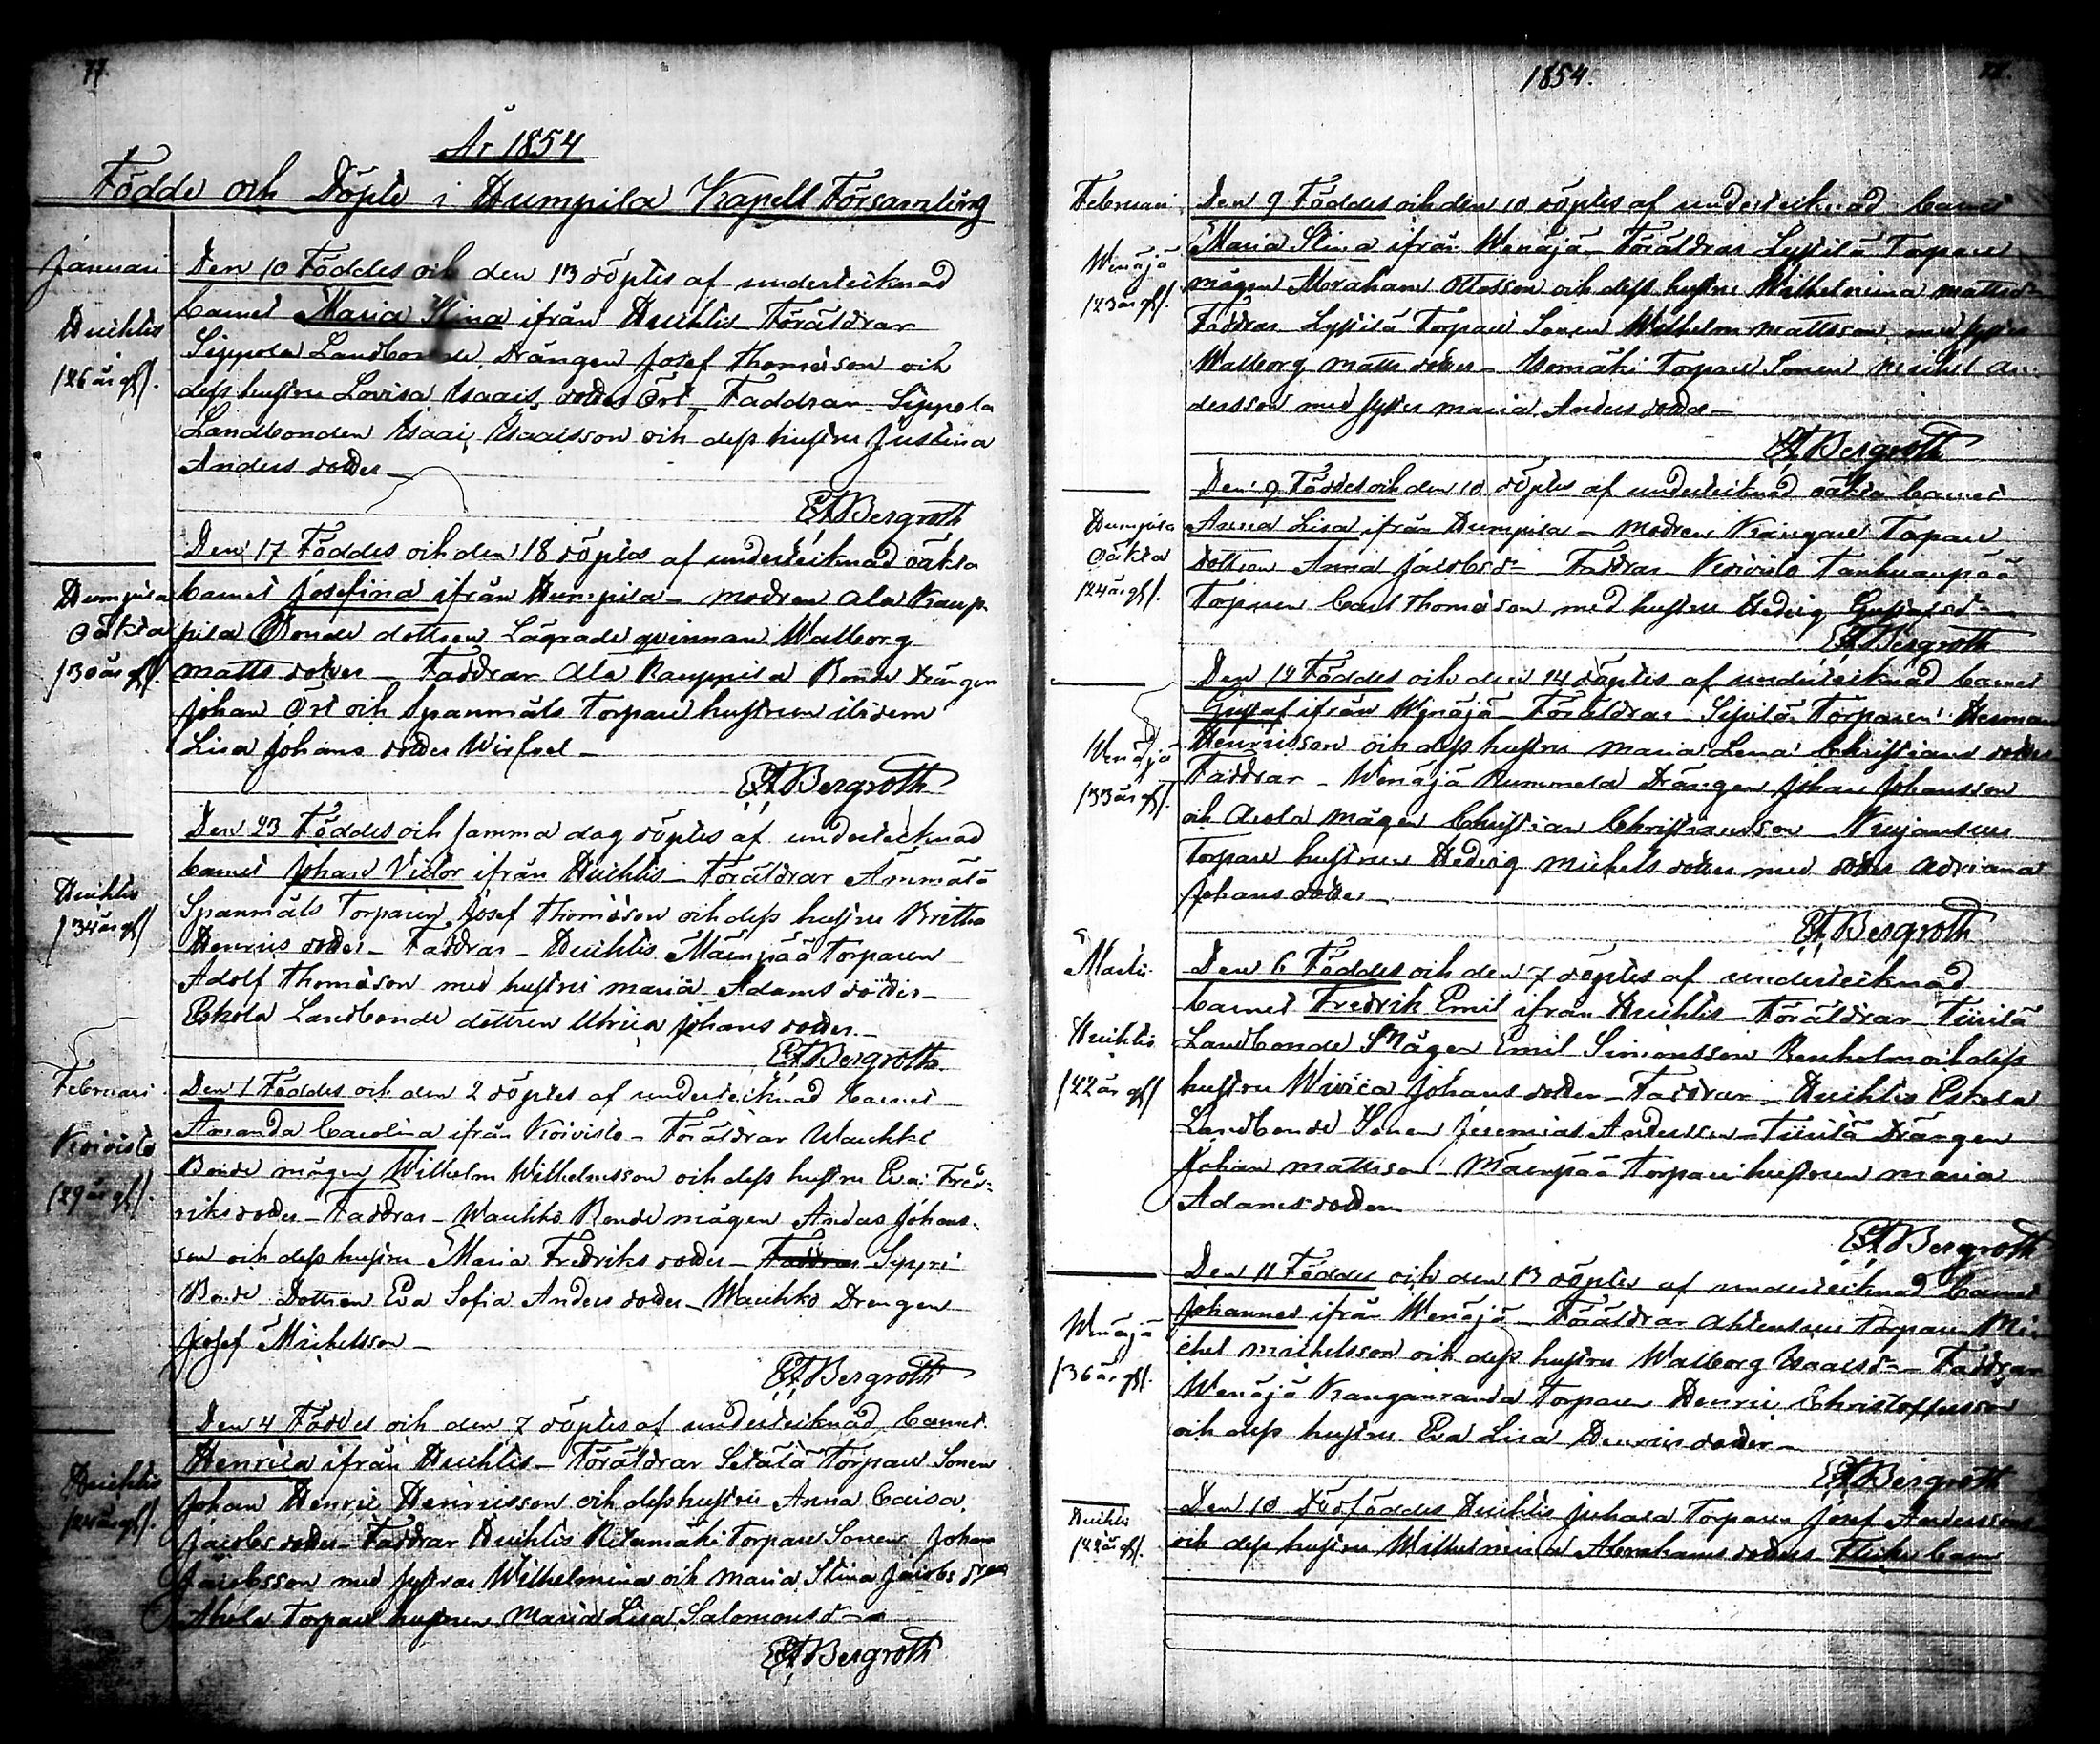 77.
År 1854
Födde och Döpte i Humpila Kapell Församling
Januari
Huchtis
/26 år gl/.
Den 10 Föddes och den 13 döptes af undertecknad
barnet Maria Stina ifrån Huchtis Föräldrar
Seppola Landbonde Drängen Josef Thomasson och
dess hustru Lovisa Isaacs dotter Ört - Faddrar - Seppola
Landbonden Isaac Isaacsson och dess hustru Justina
Anders dotter -
EABergroth
Humpila
oäkta
/30 år gl/.
Den 17 Föddes och den 18 döptes af undertecknad oäkta
barnet Josefina ifrån Humpila - modren Ala Kaup-
pila Bonde dottren Lägrade qvinnan Walborg
Matts dotter - Faddrar Ala Kauppila Bonde drängen
Johan Ört och Spanmäls Torpare hustrun
Lisa Johans dotter
EABergroth
Huchtis
/34 år gl/
Den 23 Föddes och samma dag döptes af undertecknad
barnet Johan Victor ifrån Huchtis - Föräldrar Ämmälä
Spanmäls Torparen Josef Thomasson och dess hustru Britha
Henrics dotter - Faddrar - Huchtis Mäenpää Torparen
Adolf Thomasson med hustru Maria Adams dotter -
Eskola Landbonde dottren Ulrica Johans dotter. -
EABergroth.
Februari
Koivisto
/29 år gl/.
Den 1 Föddes och den 2 döptes af undertecknad barnet
Amanda Carolina ifrån Koivisto - Föräldrar Wauhko
Bonde mågen Wilhelm Wilhelmsson och dess hustru Eva Fred-
riksdotter - Faddrar - Wauhko Bonde mågen Anders Johans-
son och dess hustru Maria Fredriks dotter - Faddrar Sypri
Bonde Dottren Eva Sofia Anders dotter - Wauhko Drengen
Josef Michelsson -
EABergroth
Huchtis
/24 år gl/.
Den 4 Föddes och den 7 döptes af undertecknad barnet
Henrica ifrån Huchtis - Föräldrar Setälä Torpare Sonen
Johan Henric Henricsson och dess hustru Anna Caisa
Jacobs dotter - Faddrar Huchtis Ritamäki Torpare Sonen Johan
Jacobsson med systrar Wilhelmina och Maria Stina Jacobs drar
Ahola Torpare hustrun Maria Lisa Salomonsdr -
EABergroth
1854.
78.
Februari
Wenäjä
/23 år gl/.
Den 9 Föddes och den 10 döptes af undertecknad barnet
Maria Stina ifrån Wenäjä - Föräldrar Lystilä Torpare
mågen Abraham Ottosson och dess hustru Wilhelmina Mattsdr
Faddrar Lystilä Torpare Sonen Wilhelm Mattsson, med syster
Walborg Matts dotter - Isomäki Torpare Sonen Michel An-
dersson med syster Maria Anders dotter -
EABergroth
Humpila
Oäkta
/24 år gl/.
Den 9 Föddes och den 10 döptes af undertecknad oäkta barnet
Anna Lisa ifrån Humpila - Modren Kangare Torpare
dottren Anna Jacobsdr - Faddrar Koivisto Tankuanpää
Torparen Carl Thomasson med hustru Hedvig Gustafsdr -
EABergroth
Wenäjä
/33 år gl/.
Den 12 Föddes och den 14 döptes af undertecknad barnet
Gustaf ifrån Wenäjä - Föräldrar - Torparen Herman
Henricsson och dess hustru Maria Lena Christians dotter
Faddrar - Wenäjä Rummela Drängen Johan Johansson
och Anola Mågen Christian Christiansson - Kujansuu
Torpare hustrun Hedvig Michels dotter med dotter Adriana
Johans dotter -
EABergroth
Martii.
Huchtis
/22 år gl/
Den 6 Föddes och den 7 döptes af undertecknad
barnet Fredrik Emil ifrån Huchtis - Föräldrar - Tiirilä
Landbonde Mågen Emil Simonsson Renholm och dess
hustru Wivica Johans dotter - Faddrar - Huchtis Eskola
Landbonde Sonen Jeremias Andersson - Tiirilä Drängen
Johan Mattsson - Mäenpää Torpare hustrun Maria
Adamsdotter
EABergroth
Wenäjä
/36 år gl/.
Den 11 Föddes och den 13 döptes af undertecknad barnet
Johannes ifrån Wenäjä - Föräldrar Ahtensuu Torparen Mi-
chel Michelsson och dess hustru Walborg Isaacsdr - Faddrar
Wenäjä Kanganranda Torparen Henric Christoffersson
och dess hustru Eva Lisa Henricsdotter -
EABergroth
Huchtis
/42 år gl/.
Den 10 Dödföddes Huchtis Juhala Torparen Josef Anderssons
och dess hustru Wilhelmina Abrahams dotters Flicke barn